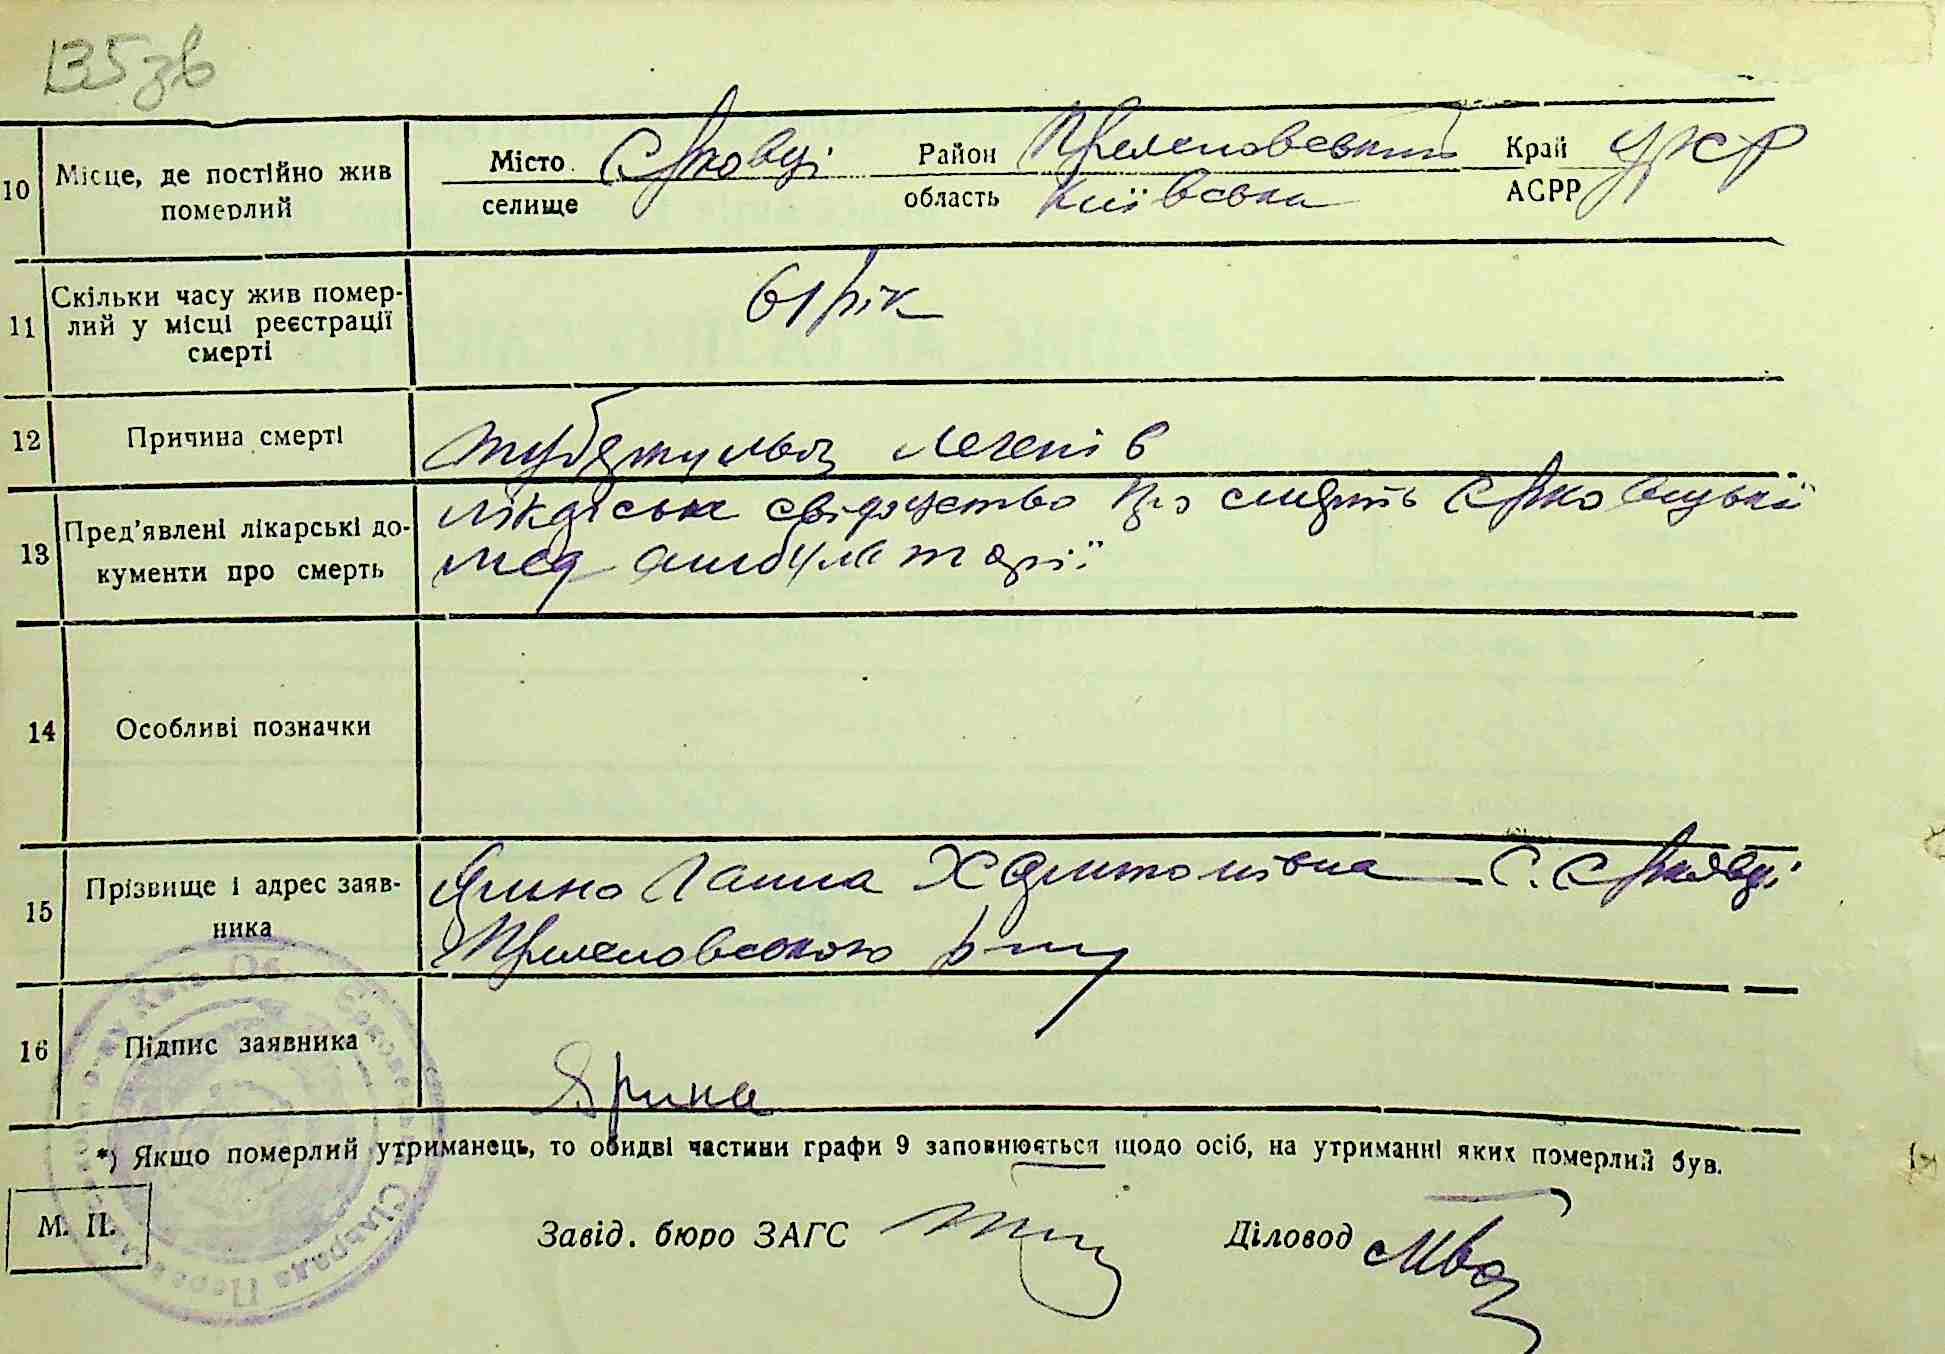 135зв
10 Місце, де постійно жив померлий Місто селище Єрковці Район область Київська Край АСРР УРСР
11 Скільки часу жив помер-
лий у місці реєстрації
смерті 61 рік
12 Причина смерті туберкульоз легенів
13 Пред'явлені лікарські до-
кументи про смерть лікарське свідоцтво про смерть Єрковецької
мед амбулаторії
14 Особливі позначки
15 Прізвище і адрес заяв-
ника Ганна Харитонівна с. Єрковці
16 Підпис заявника Ярина
*) Якщо померлий утриманець, то обидві частини графи 9 заповнюється щодо осіб, на утриманні яких померлий був.
М. П. Завід. бюро ЗАГС Діловод